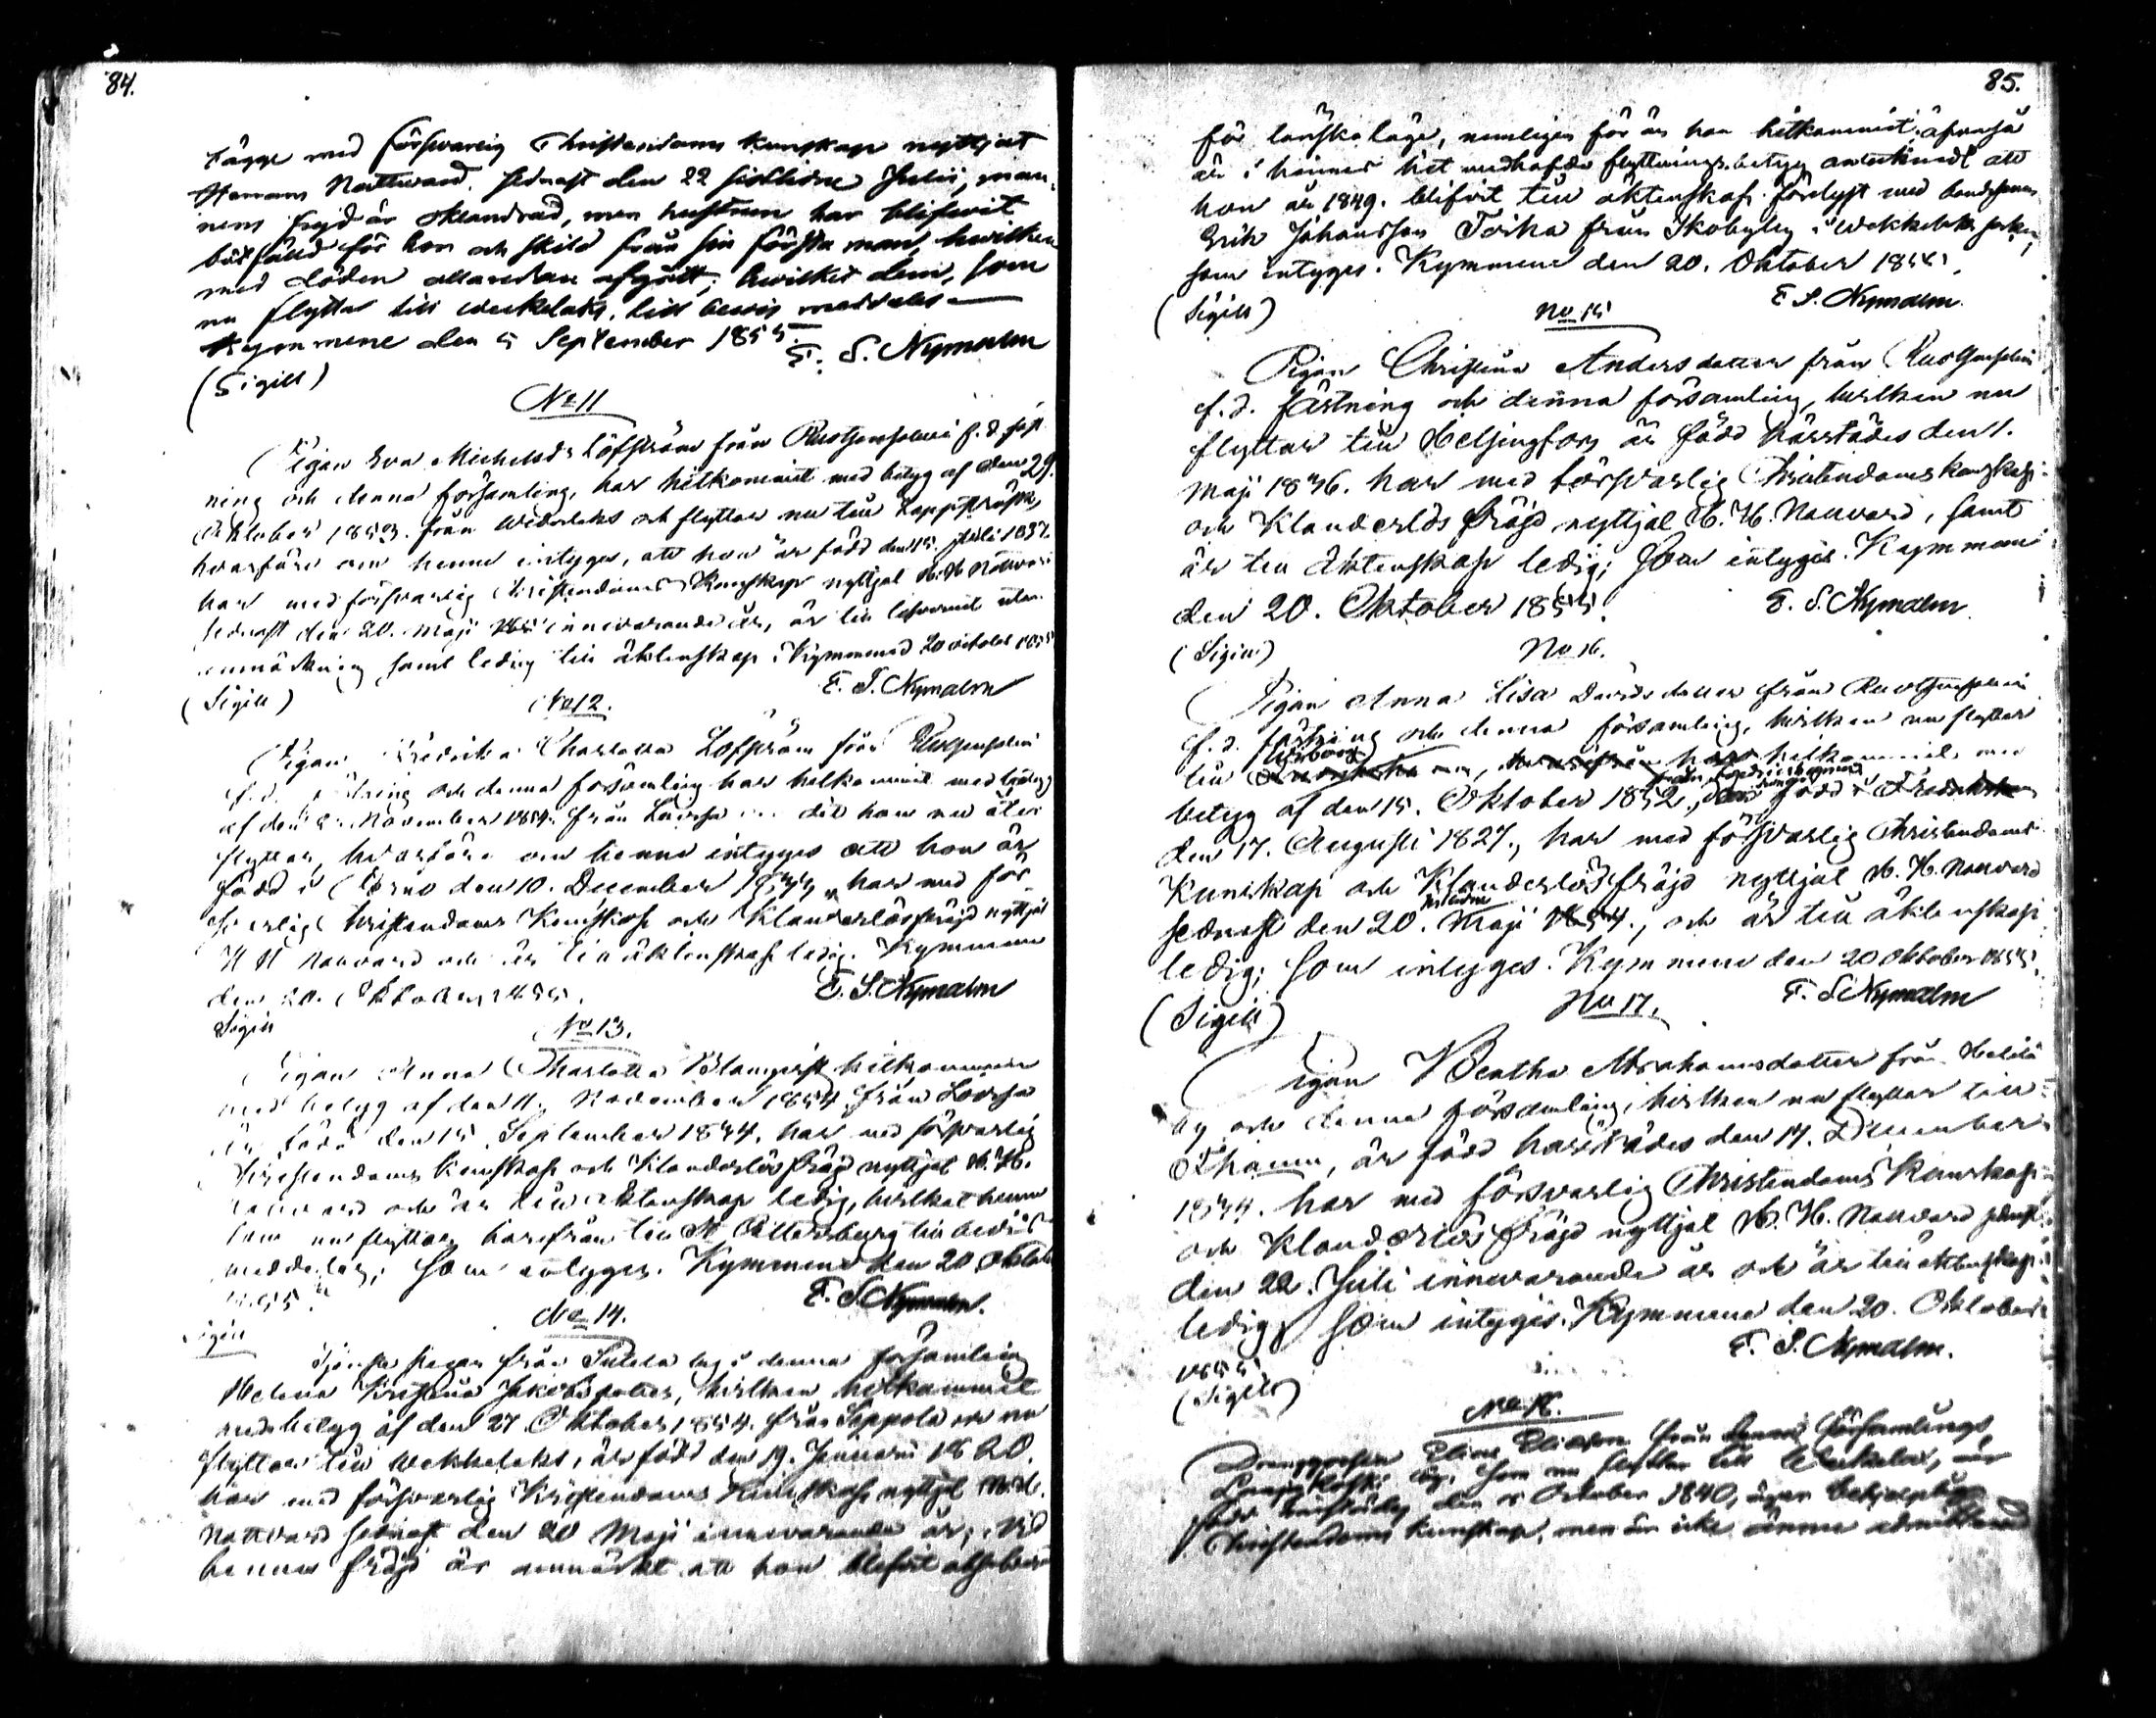 84.
tägge med försvarlig Christendoms kunskap nyttjat
Herrans Nattward, sednast den 22 sistledne Julii, man-
nens frejd är oklandrad, men hustrun har blifwit
bötfälld för hor och skild från sin första man, hwilken
med döden allaredan afgått; hwilket dem, som
nu flytta till Weckelaks, till bewis meddeles
Kymmene den 5 September 1855.
E. S. Nymalm
(Sigill)
No 11
Pigan Eva Michelsdr Löfström från Ruotsensalmi f. d. fäst
ning och denna församling, har hitkommit med betyg af den 29.
Oktober 1853 från Wederlaks och flyttar nu till Lappträsk,
hvarföre om henne intyges, att hon är född den 15. Juli 1837
har med försvarlig Christendoms Kunskap nyttjat H. H. Nattvard
sednast den 20. Maji innevarande år, är till lefvernet utan
anmärkning samt ledig till äktenskap; Kymmene d 20 October 1855
(Sigill) E. S. Nymalm
No 12.
Pigan Fredrika Charlotta Löfström från Ruotsensalmi
f. d. fästning och denna församling har hitkommit med betyg
af den 2 November 1854 från Lovisa dit hon nu åter
flyttar, hvarföre om henne intyges att hon är
född i den 10. December har med för-
svarlig Christendoms Kunskap och Klanderlös fräjd nyttjat
H H Nattvard och är till äktenskap ledig. Kymmene
den 20. Oktober 1855.
E. S. Nymalm
Sigill
No 13.
Pigan Anna Charlotta Blomqvist hitkommen
med betyg af den 11. November 1854 från Lovisa
är född den 15 September 1834. har med försvarlig
Christendoms Kunskap och Klanderlös fräjd nyttjat H. H.
Nattvard och är till äktenskap ledig, hvilket henne
som nu flyttar härifrån till St Pettersburg till bevis
meddelas; som intyges. Kymmene den 20 Oktob
1855.
E. S. Nymalm.
Sigill
No 14.
Tjenste pigan från by i denna församling
Helena Kristina Jakobsdotter, hvilken hitkommit
med betyg af den 27. Oktober 1854. från Sippola och nu
flyttar till Wekkelaks, är född den 19. Januari 1820.
har med försvarlig Kristendoms Kunskap nyttjat H. H.
Nattvard sednast den 20 Maji innevarande år; vid
hennes fräjd är anmärkt att hon blifvit absolverad
85.
för lönskaläge, nemligen för än hon hitkommit, äfvenså
är i hennes hit medhafda flyttningsbetyg antecknadt att
hon år 1849. blifvit till äktenskap förelyst med
Erik Johansson från Skobyby i Wekkelaks socken,
som intyges. Kymmene den 20. Oktober 1855.
(Sigill) E S. Nymalm.
No 15
Pigan Christina Andersdotter från Ruotsensalmi
f. d. fästning och denna församling, hvilken nu
flyttar till Helsingfors är född härstädes den 1.
Maji 1836. har med försvarlig Christendoms kunskap
och Klanderlös fräjd nyttjat H. H. Nattvard, samt
är till äktenskap ledig; Som intyges. Kymmene
den 20. Oktober 1855.
E. S. Nymalm.
(Sigill)
No 16.
Pigan Anna Lisa Davidsdotter från Ruotsensalmi
f. d. fästning och denna församling, hvilken nu flyttar
till Wiborg hitkommit med
betyg af den 15. Oktober 1852., från Fredrikshamn född
den 17. Augusti 1827., har med försvarlig Christendoms
Kunskap och Klanderlös fräjd nyttjat H. H. Nattvard
sednast den 20. Maji sistledne och är till äktenskap
ledig; som intyges. Kymmene den 20 Oktober 1855.
(Sigill) E. S Nymalm
No 17.
Pigan Beatha Abrahamsdotter från
by och denna församling, hvilken nu flyttar till
är född härstädes den 17. December
1834. har med försvarlig Christendoms Kunskap
och Klanderlös fräjd nyttjat H. H. Nattvard sednast
den 22. Juli innevarande år och är till äktenskap
ledig; som intyges. Kymmene den 20. Oktober
1855.
E. S. Nymalm.
(Sigill)
No 18.
Drenggossen Elias Eliasson från denna församlings
by, som nu flyttar till Weckelax, är
född härstädes den 5 October 1840, äger behjelplig
Christendoms kunskap, men är icke ännu admitterad